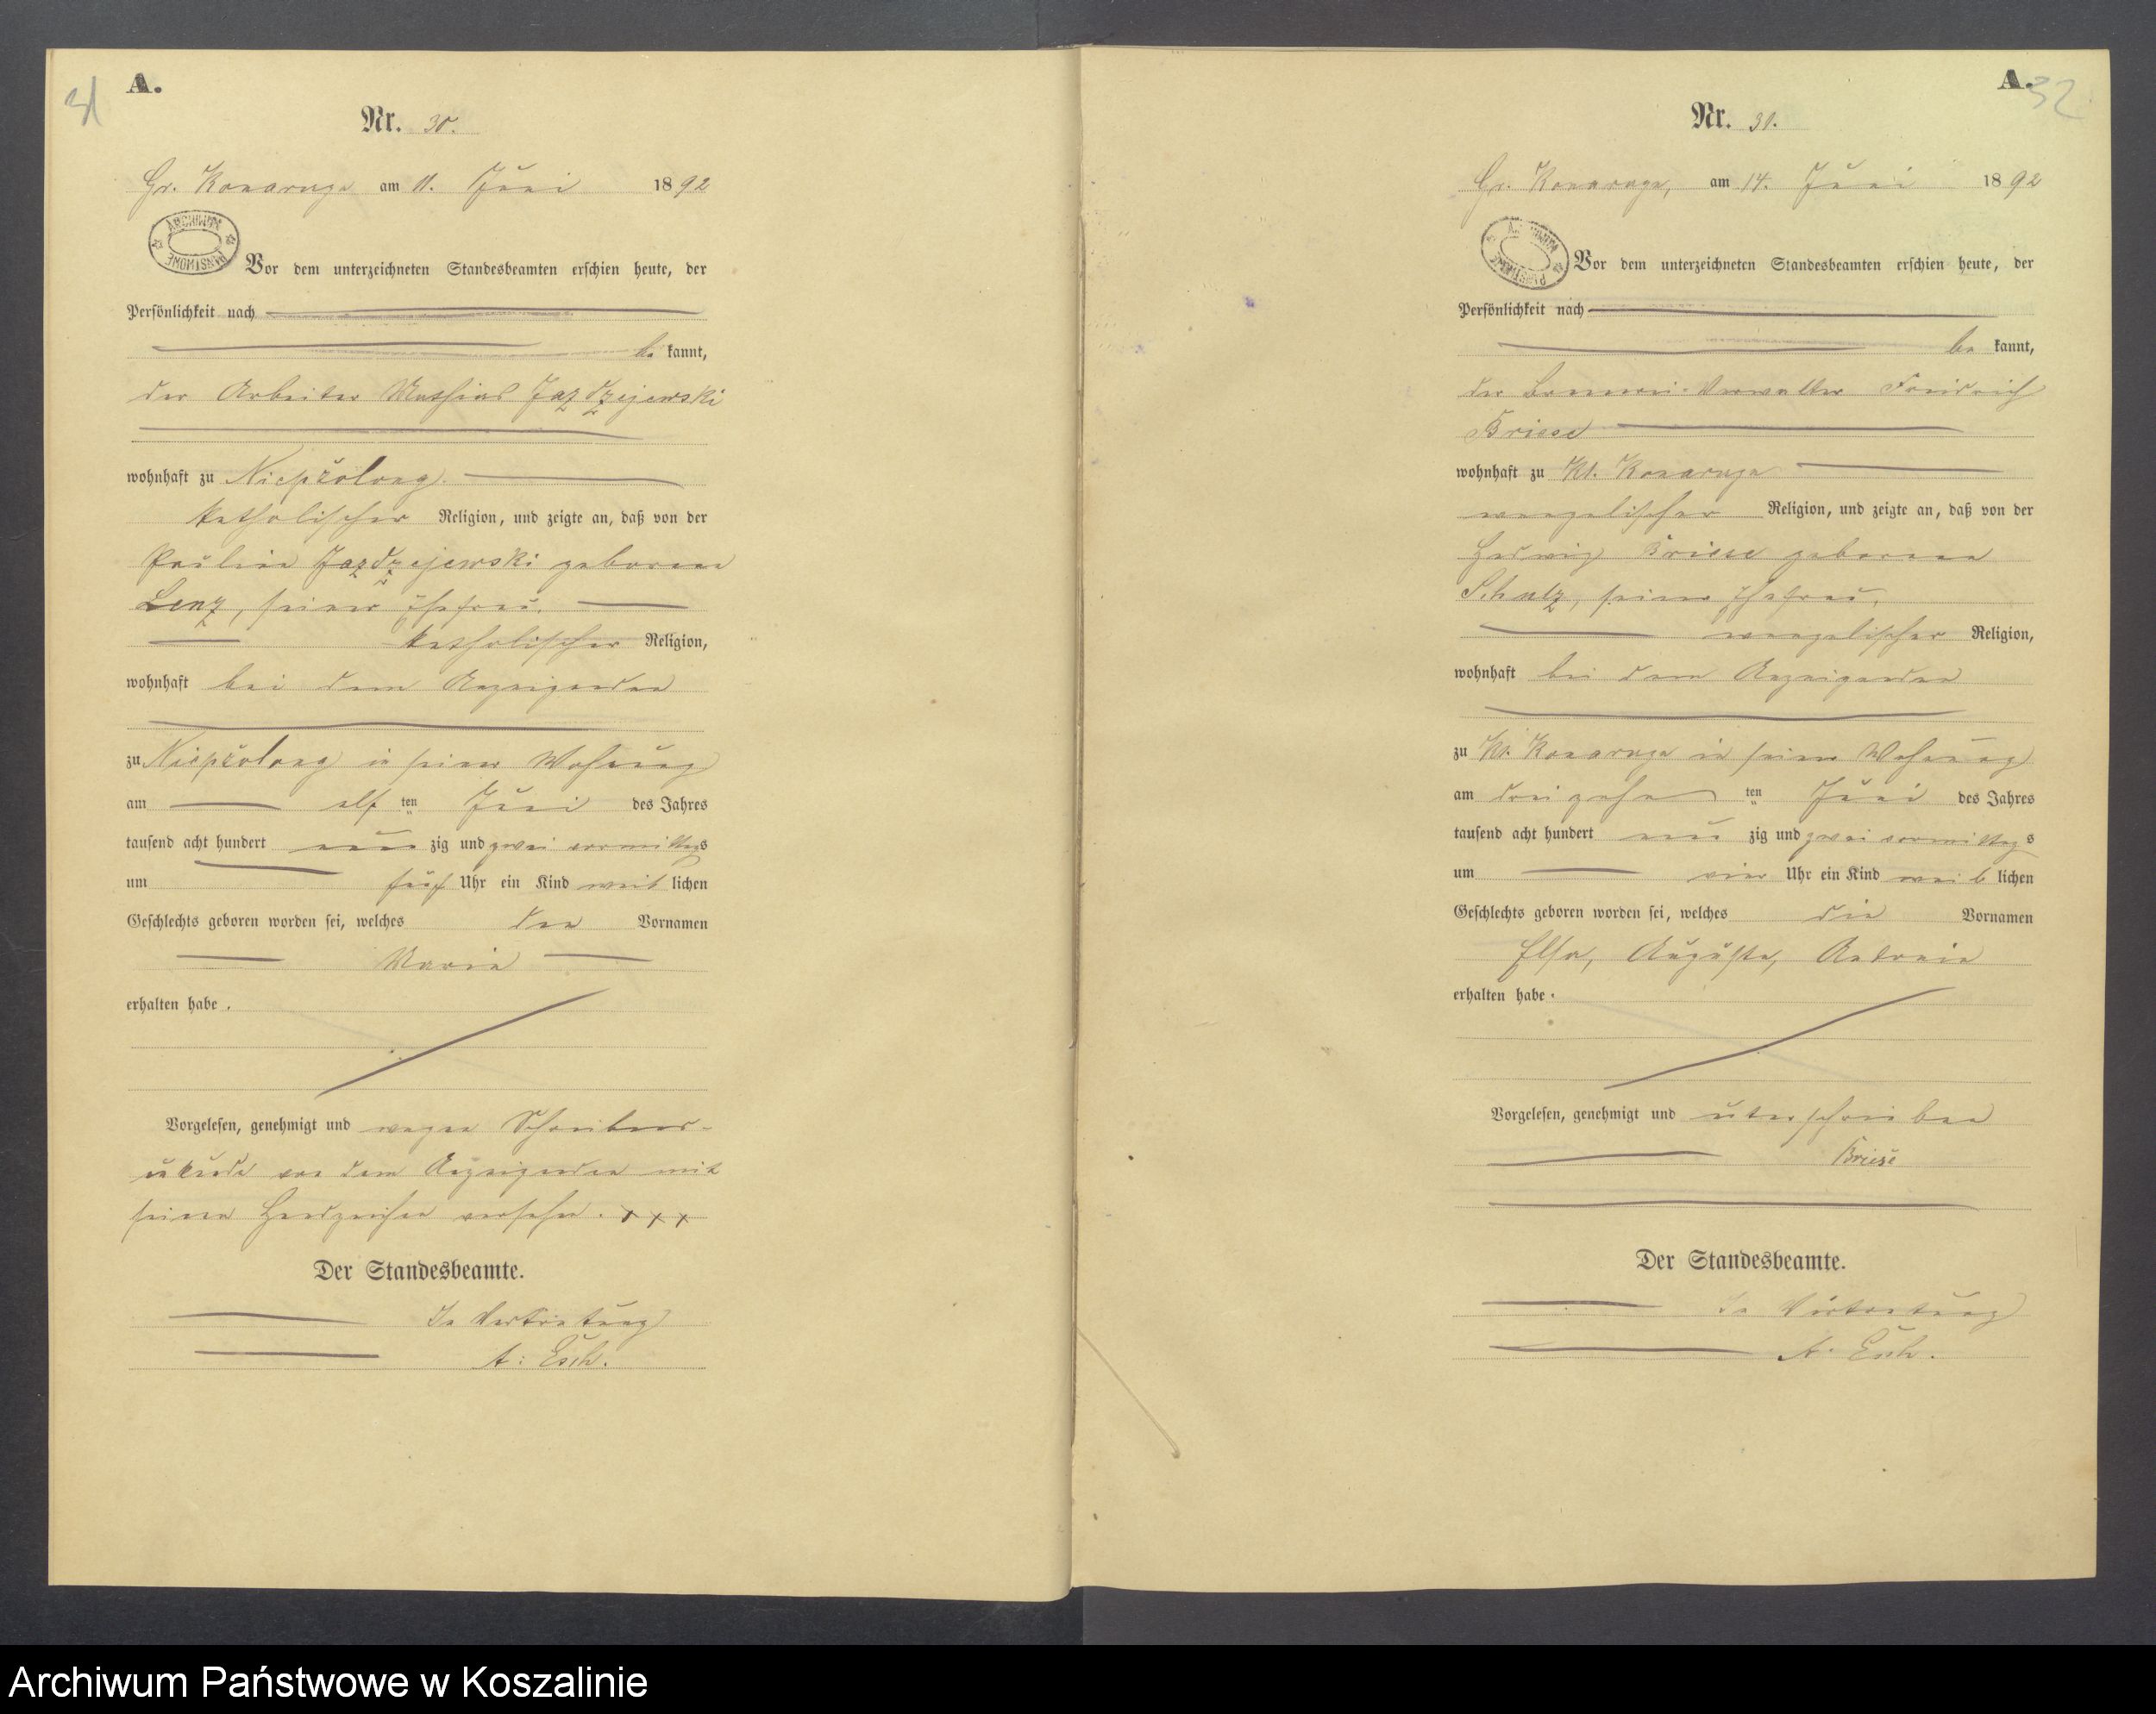 31
A.
Nr. 30.
Gr. Konarczyn am 11. Juni 1892
ARCHIWUM PAŃSTWOWE
Vor dem unterzeichneten Standesbeamten erschien heute, der
Persönlichkeit nach
be kannt,
der Arbeiter Mathias Jazdzejewski
wohnhaft zu
katholischer Religion, und zeigte an, daß von der
Pauline Jazdzejewski geborene
Lenz, seiner Ehefrau.
katholischer Religion,
wohnhaft bei dem Anzeigenden
zu in seiner Wohnung
am elf ten Juni des Jahres
tausend acht hundert neun zig und zwei vormittags
um fünf Uhr ein Kind weib lichen
Geschlechts geboren worden sei, welches den Vornamen
Maria
erhalten habe.
Vorgelesen, genehmigt und wegen Schreibens-
unkunde von dem Anzeigenden mit
seinen Handzeichen versehen. xxx
Der Standesbeamte.
In Vertretung
A. Esch.
A.
32
Nr. 31.
Gr. am 14. Juni 1892
ARCHIWUM PAŃSTWOWE
Vor dem unterzeichneten Standesbeamten erschien heute, der
Persönlichkeit nach
be kannt,
der Verwalter Friedrich
Briese
wohnhaft zu Kl.
evangelischer Religion, und zeigte an, daß von der
Hedwig Briese geborene
Schulz, seiner Ehefrau,
evangelischer Religion,
wohnhaft bei dem Anzeigenden
zu Kl. in seiner Wohnung
am dreizehn ten Juni des Jahres
tausend acht hundert neun zig und zwei vormittags
um vier Uhr ein Kind weib lichen
Geschlechts geboren worden sei, welches die Vornamen
Elsa, Auguste, Antonie
erhalten habe.
Vorgelesen, genehmigt und unterschrieben
Briese
Der Standesbeamte.
In Vertretung
A. Esch.
Archiwum Państwowe w Koszalinie